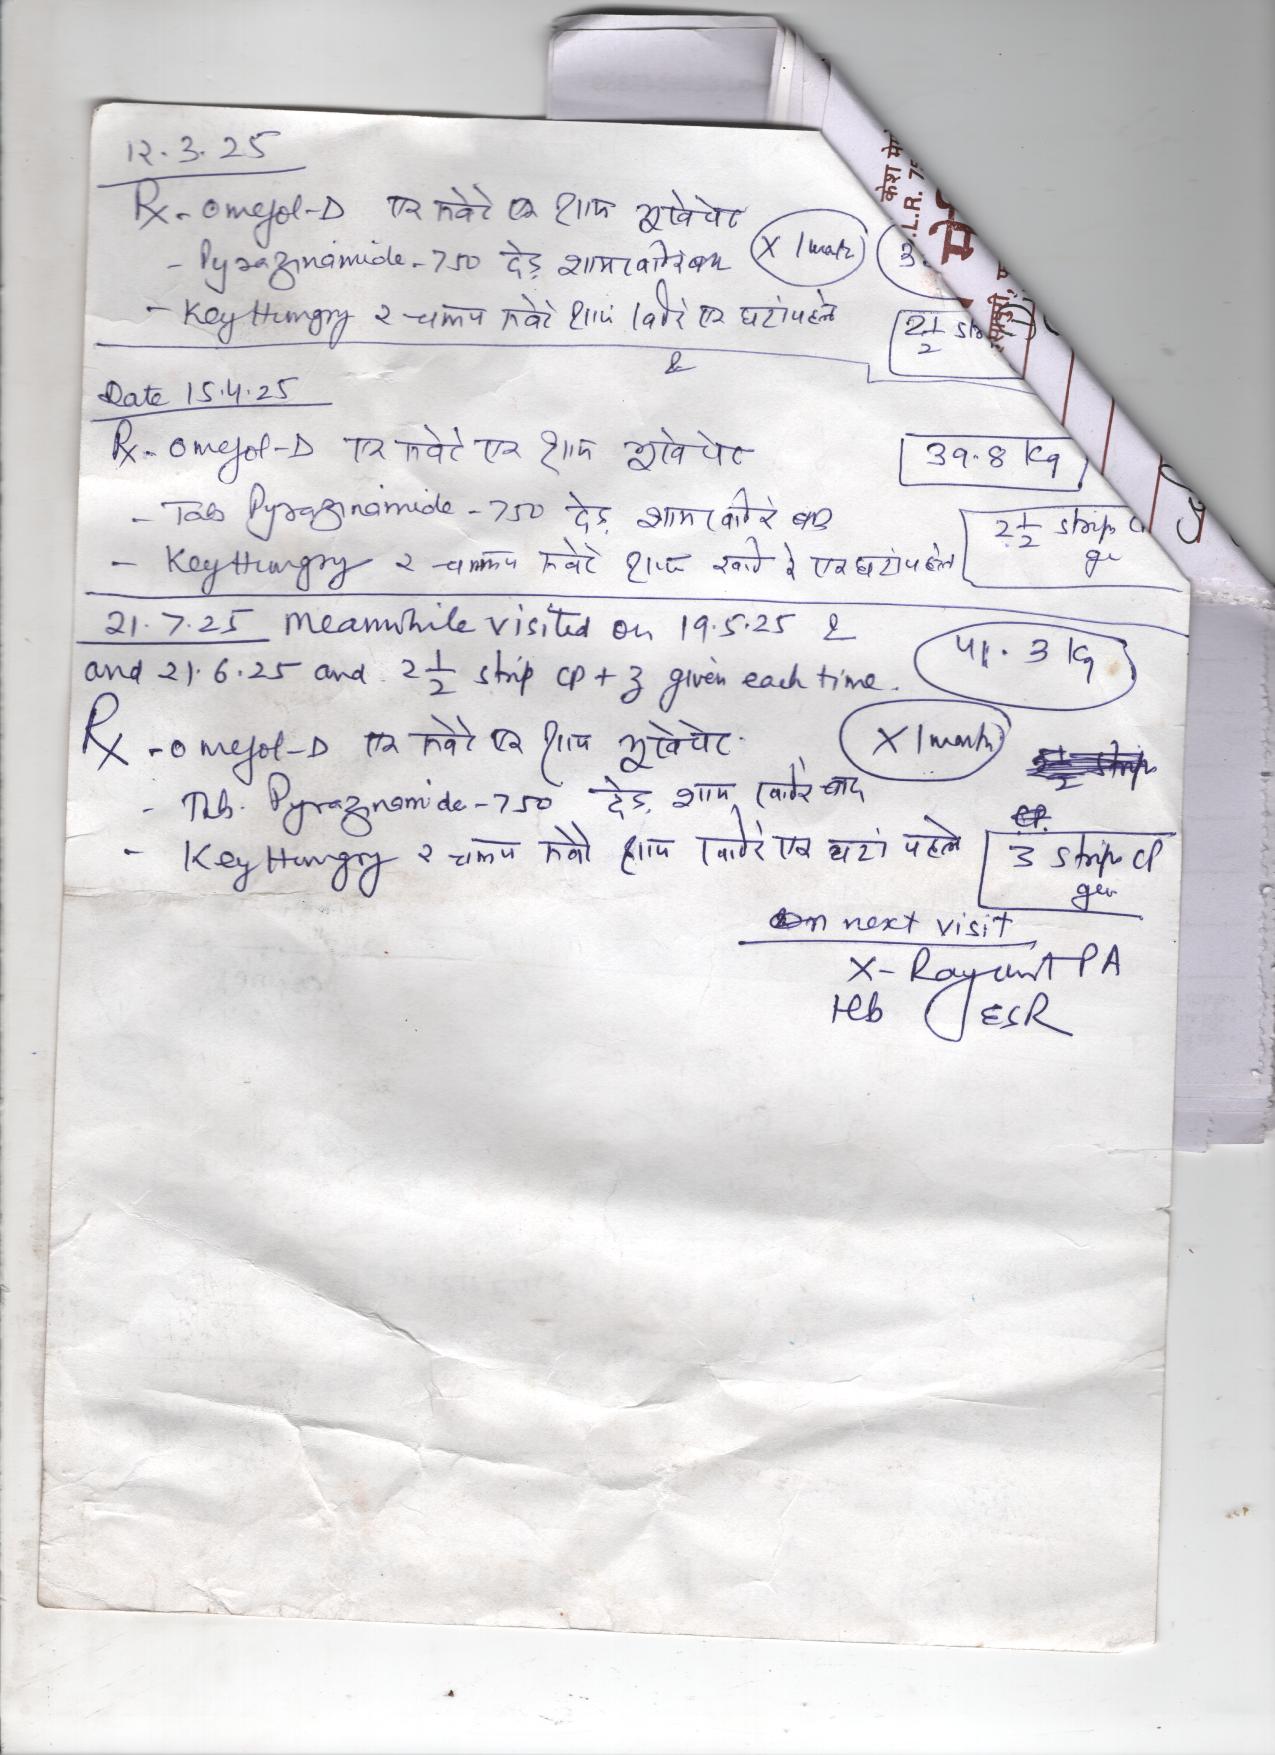 12.3.25
Rx - Omejol-D एक सवेरे एक शाम भूखे पेट
- Pyrazinamide - 750 देड़ शाम खाने के बाद
X 1 month
3.
- Key Hungry २ चम्मच सवेरे शाम खाने से एक घंटा पहले
2 1/2 strip
&
Date 15.4.25
Rx - Omejol-D एक सवेरे एक शाम भूखे पेट
39.8 Kg
- Tab Pyrazinamide - 750 देड़ शाम खाने के बाद
2 1/2 strip
- Key Hungry २ चम्मच सवेरे शाम खाने से एक घंटा पहले
21.7.25 Meanwhile visited on 19.5.25 &
and 21.6.25 and 2 1/2 strip CP + Z given each time.
41.3 Kg
Rx - Omejol-D एक सवेरे एक शाम भूखे पेट
X 1 month
- Tab. Pyrazinamide - 750 देड़ शाम खाने के बाद
- Key Hungry २ चम्मच सवेरे शाम खाने से एक घंटा पहले
3 strip CP
On next visit
X-Ray chest PA
Hb ESR
केश मे
L.R. 75